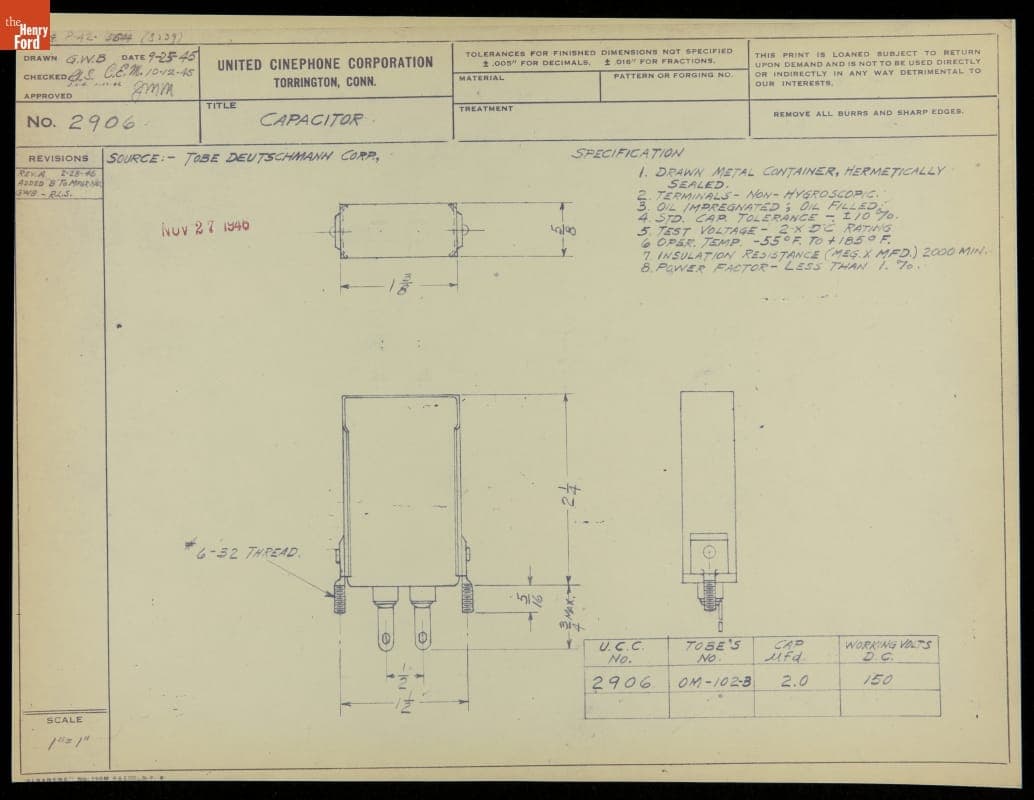 the
Henry
Ford
P-42-
DRAWN G.W.B DATE 9-25-45
CHECKED C.E.M. 10-12-45
APPROVED
No. 2906
UNITED CINEPHONE CORPORATION
TORRINGTON, CONN.
TITLE
CAPACITOR
TOLERANCES FOR FINISHED DIMENSIONS NOT SPECIFIED
± .005" FOR DECIMALS, ± .016" FOR FRACTIONS.
MATERIAL
PATTERN OR FORGING NO.
TREATMENT
THIS PRINT IS LOANED SUBJECT TO RETURN
UPON DEMAND AND IS NOT TO BE USED DIRECTLY
OR INDIRECTLY IN ANY WAY DETRIMENTAL TO
OUR INTERESTS.
REMOVE ALL BURRS AND SHARP EDGES.
REVISIONS
REV. A 2-28-46
ADDED B TO MFGR NO.
GWB - R.L.S.
SOURCE:- TOBE DEUTSCHMANN CORP.,
NOV 27 1946
SPECIFICATION
1. DRAWN METAL CONTAINER, HERMETICALLY
SEALED.
2. TERMINALS - NON-HYGROSCOPIC.
3. OIL IMPREGNATED; OIL FILLED.
4. STD. CAP. TOLERANCE - ±10%.
5. TEST VOLTAGE - 2 X DC RATING
6 OPER. TEMP. -55°F. TO +185°F.
7. INSULATION RESISTANCE (MEG. X MFD.) 2000 MIN.
8. POWER FACTOR - LESS THAN 1.%.
5/8
2 1/4
# 6-32 THREAD.
5/16
3/4 MAX.
1/2
1 1/2
U.C.C. No. TOBE'S NO. CAP Mfd. WORKING VOLTS D.C.
2906 OM-102-B 2.0 150
SCALE
1"=1"